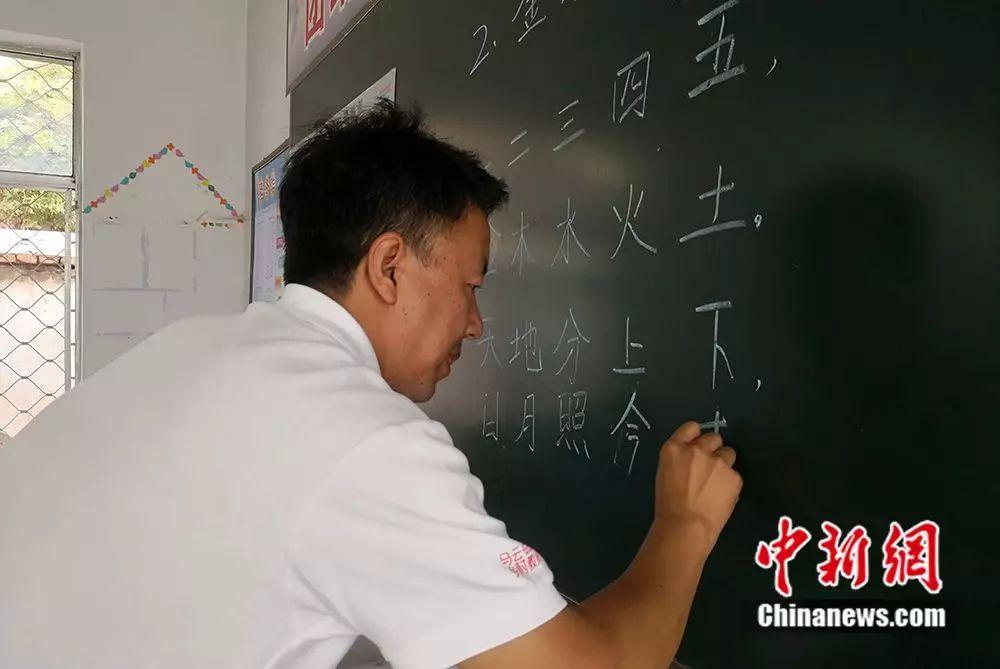 团
2. 金
一二三四五，
金木水火土。
天地分上下，
日月照今
马云
中新網
Chinanews.com